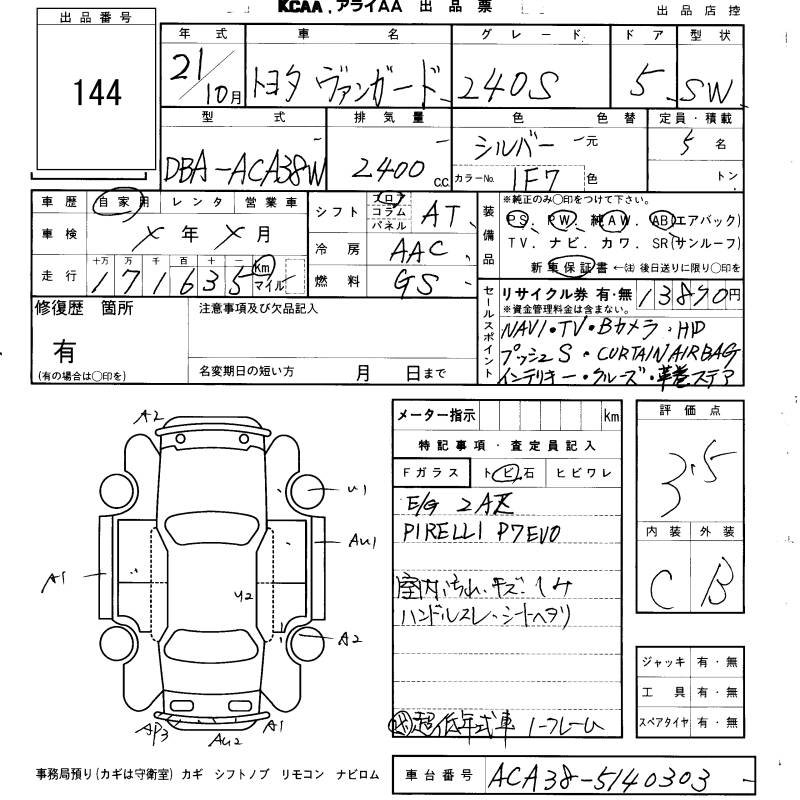 KCAA、アライAA 出品票
出品店控
出品番号
144
年式 車名 グレード ドア 型状
21/10月 トヨタ ヴァンガード 240S 5 SW
型式 排気量 色 色替 定員・積載
DBA-ACA38W 2400 C.C. シルバー 元 5名
カラーNo. 1F7 色 トン
車歴 自家用 レンタ 営業車
車検 X年X月
走行 十万 万 千 百 十 一 Km マイル
171635
シフト フロア コラム パネル AT
冷房 AAC
燃料 GS
装備品
※純正のみ○印をつけて下さい。
PS、PW、純AW、AB(エアバック)
TV、ナビ、カワ、SR(サンルーフ)
新車保証書←㊟後日送りに限り○印を
修復歴 箇所
有
(有の場合は○印を)
注意事項及び欠品記入
名変期日の短い方 月 日まで
セールスポイント
リサイクル券 有・無 13870円
※資金管理料金は含まない。
NAVI・TV・Bカメラ・HID
プッシュS・CURTAIN AIRBAG
インテリキー・クルーズ・革巻ステア
A2
U1
AU1
A1
U2
A2
AP3
AU2
A1
メーター指示 Km
特記事項・査定員記入
Fガラス ト ビ 石 ヒビワレ
E/G 2AZ
PIRELLI P7EVO
室内汚れ・キズ・シミ
ハンドルスレ・シートヘタリ
超低年式車
評価点
3.5
内装 外装
C B
ジャッキ 有・無
工具 有・無
スペアタイヤ 有・無
事務局預り(カギは守衛室) カギ シフトノブ リモコン ナビロム
車台番号 ACA38-5140303